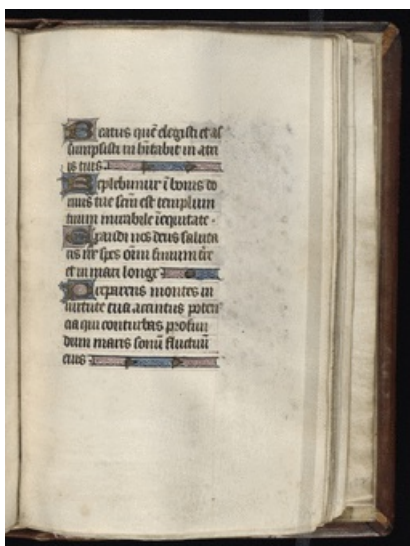 Beatus quē elegisti et as
sumpsisti in hītabit in atri
is tuis
Replebimur ī bonis do
mus tue scm̄ est templum
tuum mirabile ī equitate
Exaudi nos deus saluta
ris nr̄ spes oīm finium tr̄e
et in mari longe
Preparens montes in
virtute tua accintus poten
cia qui conturbas profun
dum maris sonū fluctuū
eius